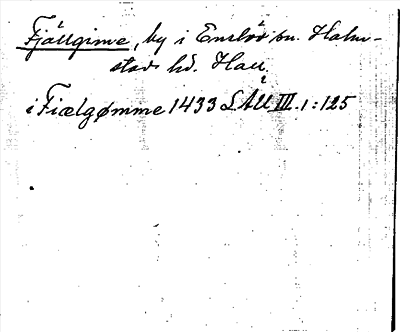 Fjällgime, by i Enslöv sn. Halm-
stads hd. Hall.
i Fiælgømme 1433 LAU III.1:125